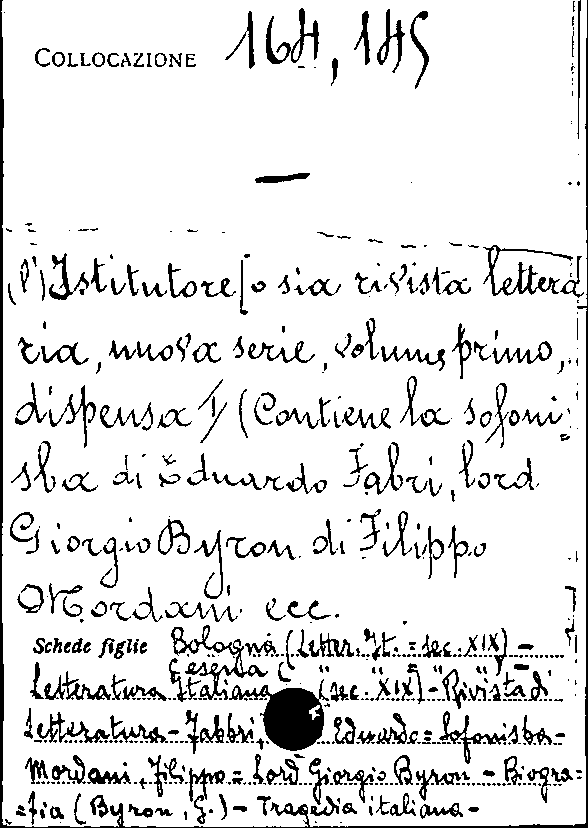 COLLOCAZIONE 164, 145
(l') Istitutore [o sia rivista lettera
ria, nuova serie, volume primo,
dispensa 1/ (Contiene la sofoni=
sba di Eduardo Fabri, lord
Giorgio Byron di Filippo
Mordani ecc.
Schede figlie Bologna (Letter. It. = sec. XIX) -
Cesena ( " " " " ) -
Letteratura Italiana (sec. XIX) - Rivista di
Letteratura - Fabbri, Eduardo = Sofonisba -
Mordani, Filippo = Lord Giorgio Byron - Biogra=
=fia (Byron, G.) - Tragedia italiana -